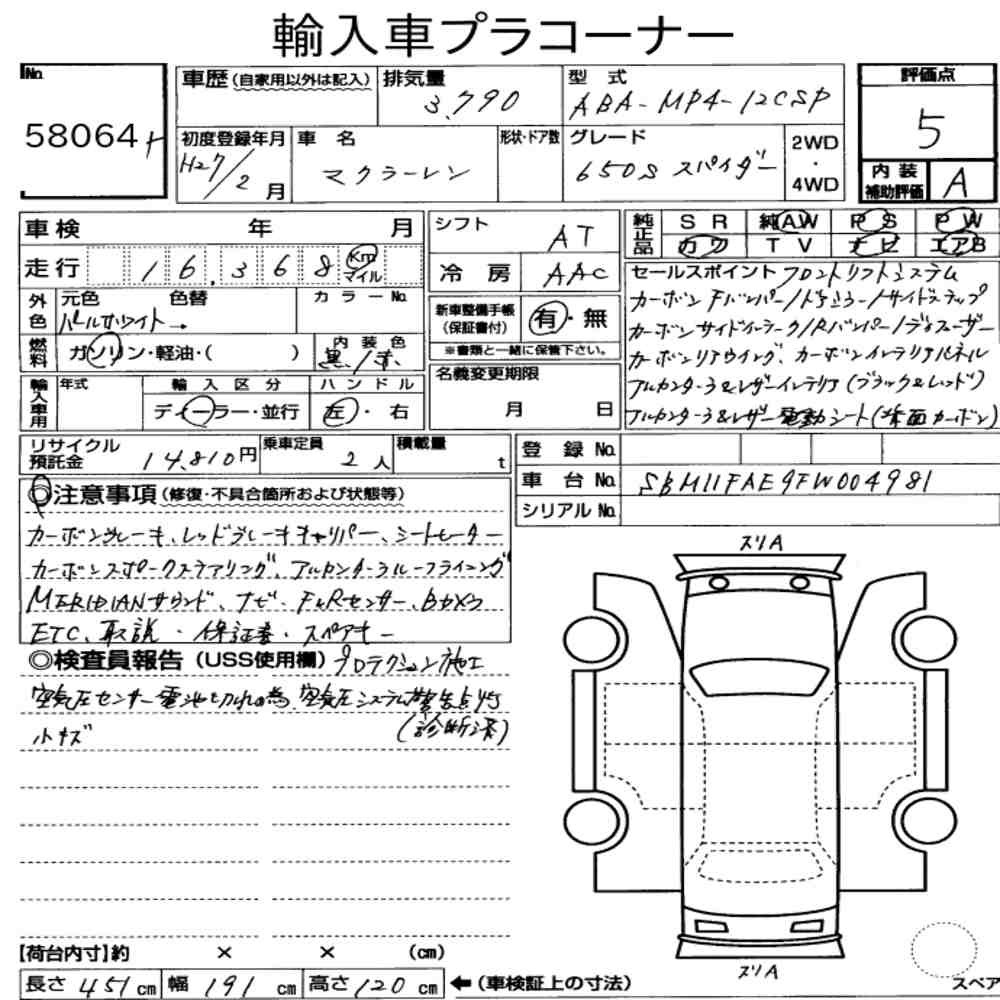 輸入車プラコーナー
No. 58064
車歴 (自家用以外は記入)
排気量 3,790
型式 ABA-MP4-12CSP
評価点 5
初度登録年月 H27/2月
車名 マクラーレン
形状・ドア数
グレード 650S スパイダー
2WD・4WD
内装補助評価 A
車検 年 月
走行 16,368 Km マイル
外色 元色 パールホワイト 色替 カラーNo.
燃料 ガソリン・軽油・( )
内装色 黒/赤
輸入車用 年式
輸入区分 ディーラー・並行
ハンドル 左・右
シフト AT
冷房 AAC
新車整備手帳 (保証書付) 有・無
※書類と一緒に保管下さい。
名義変更期限 月 日
純正品 SR 純AW PS PW
カワ TV ナビ エアB
セールスポイント フロントリフトシステム
カーボンFバンパー/ドアミラー/サイドステップ
カーボンサイドインテーク/Rバンパー/ディフューザー
カーボンリアウイング、カーボンインテリアパネル
アルカンターラ&レザーインテリア(ブラック&レッド)
アルカンターラ&レザー電動シート(背面カーボン)
リサイクル預託金 14,810円
乗車定員 2人
積載量 t
登録No.
車台No. SBM11FAE9FW004981
シリアルNo.
◎注意事項 (修復・不具合箇所および状態等)
カーボンブレーキ、レッドブレーキキャリパー、シートヒーター
カーボンスポークステアリング、アルカンターラルーフライニング
MERIDIANサウンド、ナビ・F&Rセンサー、Bカメラ
ETC、取説・保証書・スペアキー
◎検査員報告 (USS使用欄) プロテクション施工
空気圧センサー電池切れの為、空気圧システム警告点灯
(診断済)
小キズ
スリA
スリA
【荷台内寸】約 × × (cm)
長さ 451 cm 幅 191 cm 高さ 120 cm ←(車検証上の寸法)
スペア